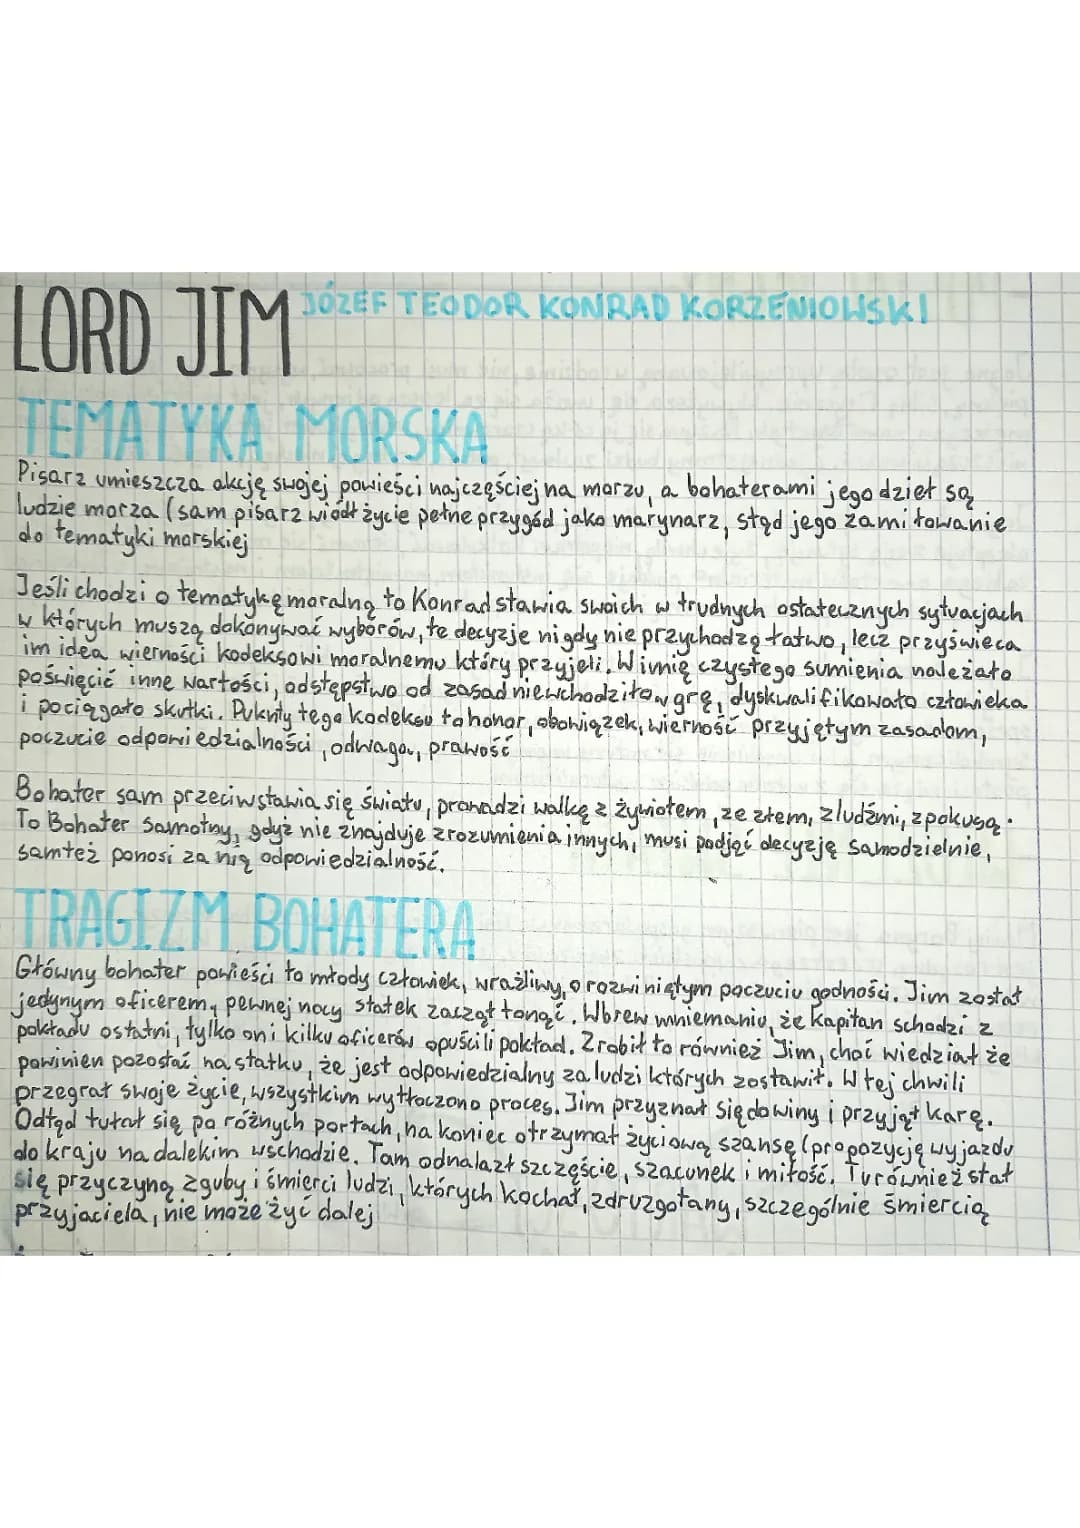 LORD JIM JÓZEF TEODOR KONRAD KORZENIOWSKI
TEMATYKA MORSKA
Pisarz umieszcza akcję swojej powieści najczęściej na morzu, a bohaterami jego dzieł są
ludzie morza (sam pisarz wiódł życie pełne przygód jako marynarz, stąd jego zamiłowanie
do tematyki morskiej
Jeśli chodzi o tematykę moralną to Konrad stawia swoich w trudnych ostatecznych sytuacjach
w których muszą dokonywać wyborów, te decyzje nigdy nie przychodzą łatwo, lecz przyświeca
im idea wierności kodeksowi moralnemu który przyjeli. W imię czystego sumienia należało
poświęcić inne wartości, odstępstwo od zasad niewchodziło w grę, dyskwalifikowało człowieka
i pociągało skutki. Puknty tego kodeksu to honor, obowiązek, wierność przyjętym zasadom,
poczucie odpowiedzialności, odwaga, prawość
Bohater sam przeciwstawia się światu, prowadzi walkę z żywiołem, ze złem, z ludźmi, z pokusą.
To Bohater samotny, gdyż nie znajduje zrozumienia innych, musi podjąć decyzję samodzielnie,
sam też ponosi za nią odpowiedzialność.
TRAGIZM BOHATERA
Główny bohater powieści to młody człowiek, wrażliwy, o rozwiniętym poczuciu godności. Jim został
jedynym oficerem, pewnej nocy statek zaczął tonąć. Wbrew mniemaniu, że kapitan schodzi z
pokładu ostatni, tylko on i kilku oficerów opuścili pokład. Zrobił to również Jim, choć wiedział że
powinien pozostać na statku, że jest odpowiedzialny za ludzi których zostawił. W tej chwili
przegrał swoje życie, wszystkim wytłoczono proces. Jim przyznał się do winy i przyjął karę.
Odtąd tułał się po różnych portach, na koniec otrzymał życiową szansę (propozycję wyjazdu
do kraju na dalekim wschodzie. Tam odnalazł szczęście, szacunek i miłość. Tu również stał
się przyczyną zguby i śmierci ludzi, których kochał, zdruzgotany, szczególnie śmiercią
przyjaciela, nie może żyć dalej